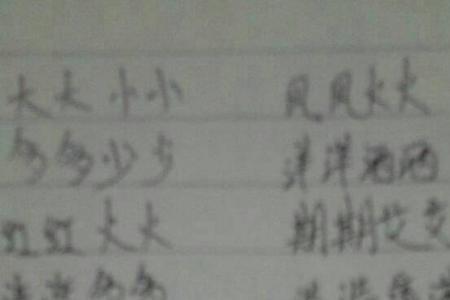 大大小小 风风火火
多多少少 洋洋洒洒
红红火火 期期艾艾